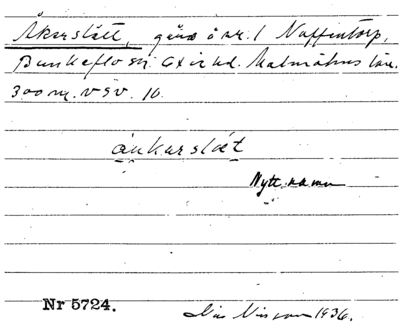 Åkerslätt, gård å nr. 1 Naffentorp,
Bunkeflo sn. Oxie hd. Malmöhus län.
300 m. V S V. 10.
åukarslæt
Nytt namn
Nr 5724.
Nilsson 1936.